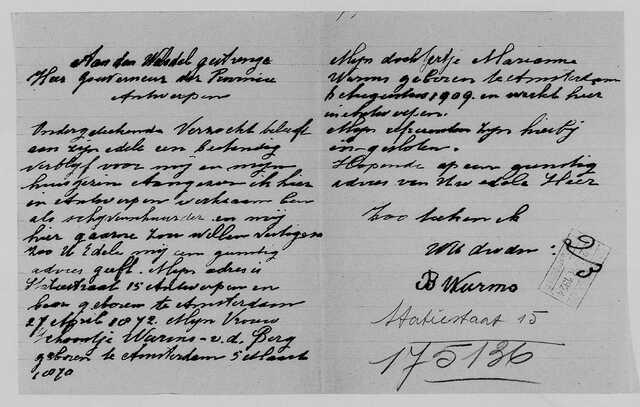 Aan den Weledel gestrenge
Heer Gouverneur der Provincie
Antwerpen
Ondergeteekende Verzoekt beleeft
aan zijn edele een bestendig
verblyf voor mij en mijn
huisgezin Aangezien ik hier
in Antwerpen werkzaam ben
als schyvenschuurder en mij
hier gaarne zou willen vestigen
zoo U Edele mij een gunstig
advies geeft. Mijn adres is
Statiestraat 15 Antwerpen en
ben geboren te Amsterdam
27 April 1872. Mijn Vrouw
Schoontje Warms - v.d. Berg
geboren te Amsterdam 5 Maart
1870
Mijn dochtertje Marianne
Warms geboren te Amsterdam
6 Augustus 1909. en werkt hier
in Antwerpen.
Mijn zijn hierbij
in-gesloten.
Hopende op een gunstig
advies van Uw edele Heer
Zoo teeken ik
Uw dw dn:
B Warms
Statiestaat 15
175136
2/3